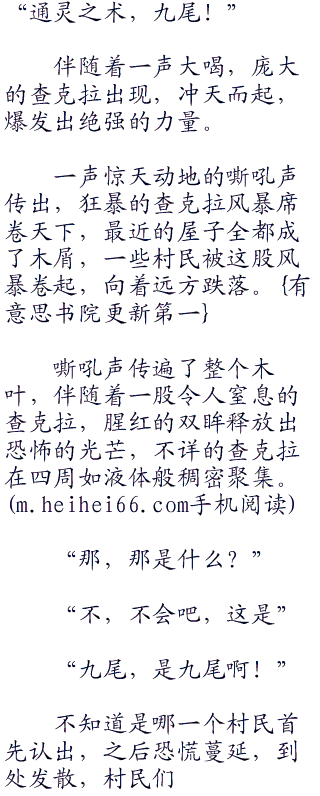 “通灵之术，九尾！”
伴随着一声大喝，庞大
的查克拉出现，冲天而起，
爆发出绝强的力量。
一声惊天动地的嘶吼声
传出，狂暴的查克拉风暴席
卷天下，最近的屋子全都成
了木屑，一些村民被这股风
暴卷起，向着远方跌落。{有
意思书院更新第一}
嘶吼声传遍了整个木
叶，伴随着一股令人窒息的
查克拉，腥红的双眸释放出
恐怖的光芒，不详的查克拉
在四周如液体般稠密聚集。
(m.heihei66.com手机阅读)
“那，那是什么？”
“不，不会吧，这是”
“九尾，是九尾啊！”
不知道是哪一个村民首
先认出，之后恐慌蔓延，到
处发散，村民们